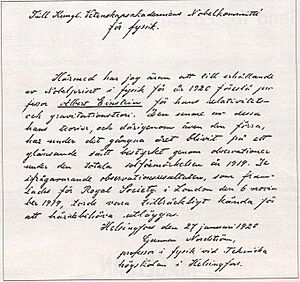 Till Kungl. Vetenskapsakademiens Nobelkommitté
för fysik.
Härmed har jag äran att till erhållande
av Nobelpriset i fysik för år 1920 föreslå pro-
fessor Albert Einstein för hans relativitets-
och gravitationsteori. Den senare av dessa
hans teorier, och därigenom även den förra,
har under det gångna året blivit på ett
glänsande sätt bestyrkt genom observationer
under den totala solförmörkelsen år 1919. De
ifrågavarande observationsresultaten, som fram-
lades för Royal Society i London den 6 novem-
ber 1919, torde vara tillräckligt kända för
att här behöva utläggas.
Helsingfors den 27 januari 1920
Gunnar Nordström,
professor i fysik vid Tekniska
högskolan i Helsingfors.